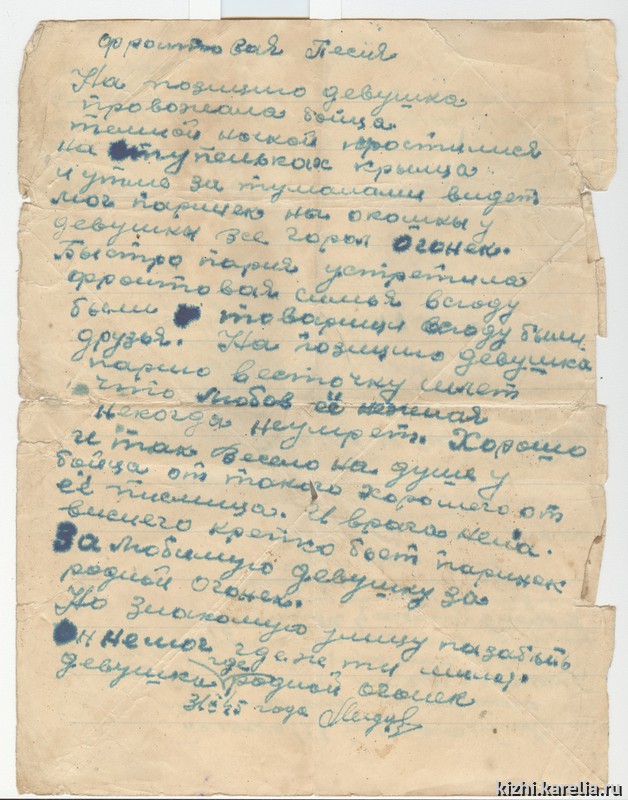 фронтовая Песня
На позицию девушка
провожала бойца
темной ночкой простилися
на ступеньках крыльца
и утло за туманами видет
мог паринек на окошки у
девушки все горел Огонек.
Быстро парня устретила
фронтовая симья всюду
были товарищи всюду были
друзья. На позицию девушка
парню весточку шлет
что любов её нежная
некогда неумрет. Хорошо
и так весело на душе у
бойца от такого хорошего от
её писмица. И врага
крепко бьет паринек
За любимую девушку за
родной огонек.
На знакомую улицу позабыть
он немог где же ты милая
девушка где родной огонек
45 года
kizhi.karelia.ru